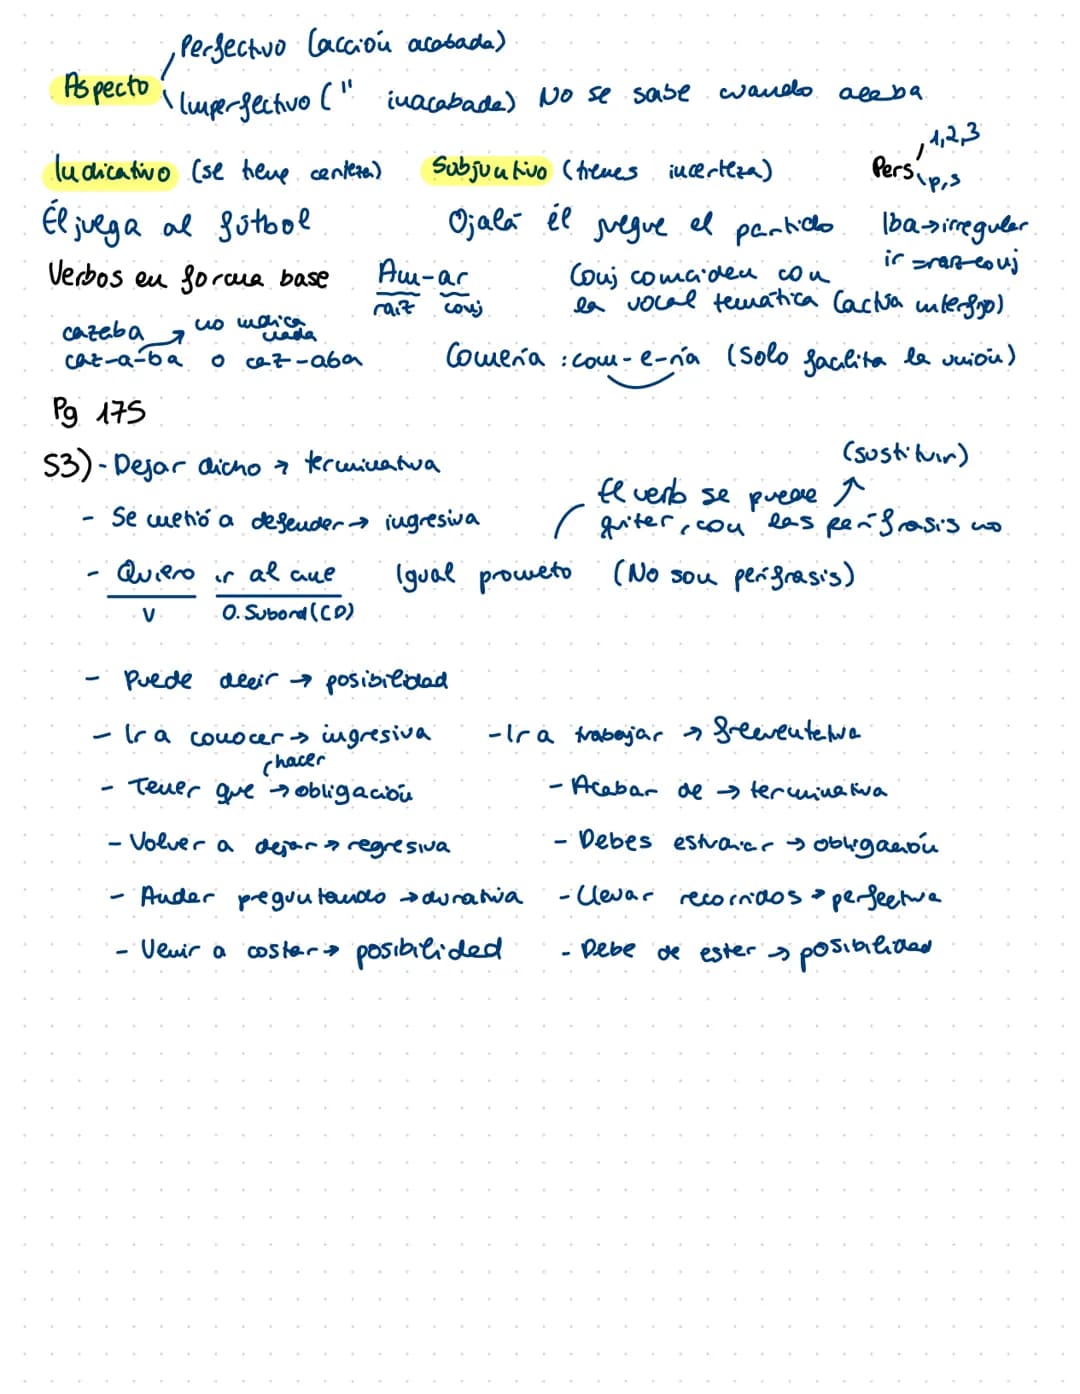 Perfectivo (acción acabada)
Aspecto
Imperfectivo (" inacabada) No se sabe cuando acaba
1,2,3
Pers
p,s
Indicativo (se tiene certeza) Subjuntivo (tienes incerteza)
Él juega al fútbol Ojalá él juegue el partido Iba→irregular
ir =raíz-conj
Verbos en forma base Am-ar Conj comciden con
raíz conj la vocal temática (actúa interfijo)
cazaba → no indica nada
caz-a-ba o caz-aba Comería : com-e-ría (Solo facilita la unión)
Pg 175
53) - Dejar dicho → terminativa (sustituir)
- Se metió a defender → ingresiva El verb se puede
quitar, con las perífrasis no
- Quiero ir al cine Igual prometo (No son perífrasis)
V O. Subord (CD)
- Puede decir → posibilidad
- Ir a conocer → ingresiva - Ir a trabajar →
hacer
- Tener que → obligación - Acabar de → terminativa
- Volver a dejar → regresiva - Debes estudiar → obligación
- Andar preguntando → durativa - Llevar recorridos → perfectiva
- Venir a costar → posibilidad - Debe de estar → posibilidad